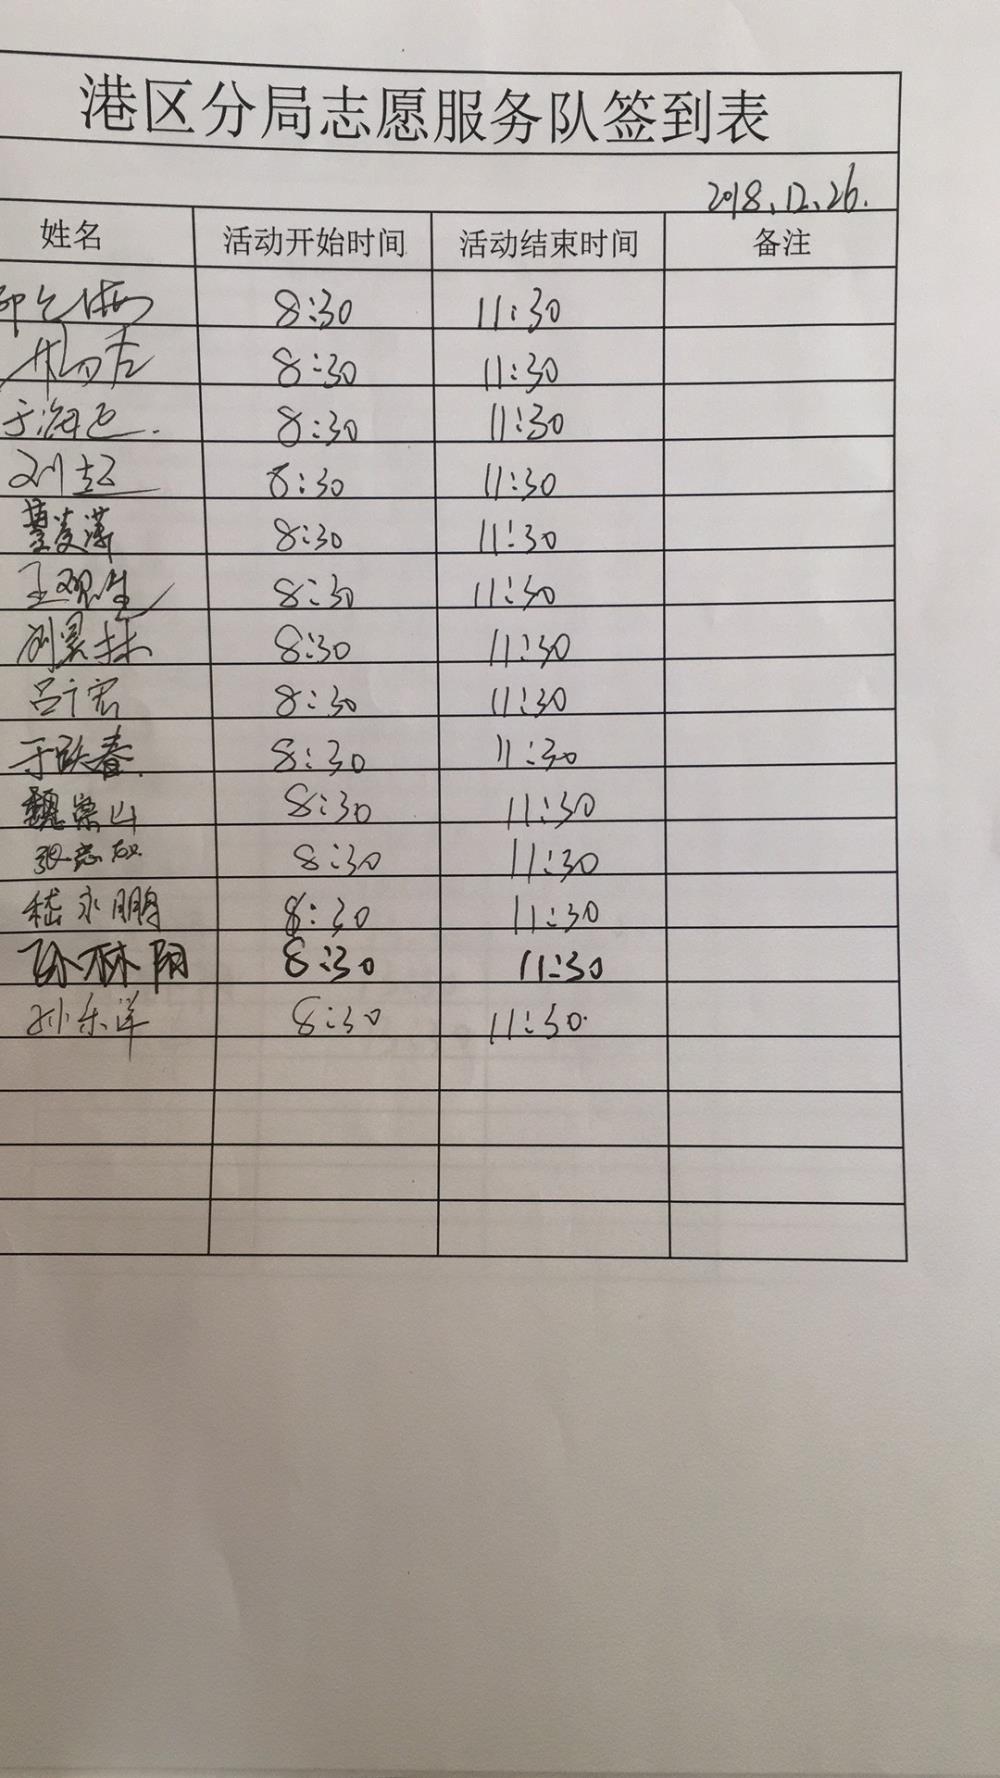 港区分局志愿服务队签到表
2018.12.26.
姓名 活动开始时间 活动结束时间 备注
8:30 11:30
8:30 11:30
于海 8:30 11:30
刘超 8:30 11:30
董凌潇 8:30 11:30
王观生 8:30 11:30
刘昊林 8:30 11:30
吕广宏 8:30 11:30
于跃春. 8:30 11:30
魏崇山 8:30 11:30
张志 8:30 11:30
嵇永鹏 8:30 11:30
孙林阳 8:30 11:30
孙乐洋 8:30 11:30.